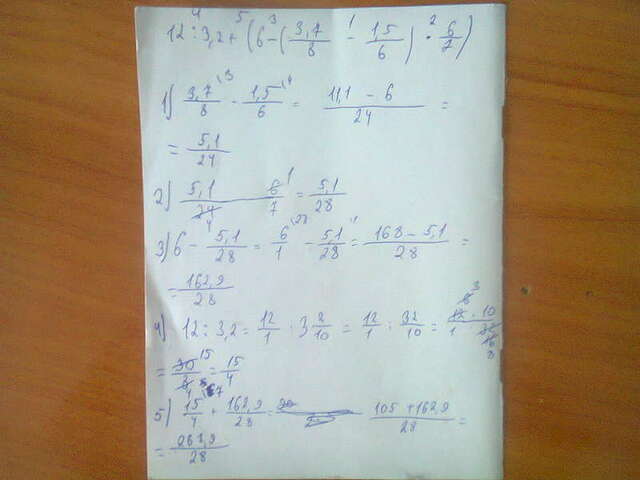 12 : 3,2 + (6 - (3,7/8 - 1,5/6) · 6/7)
1) 3,7/8 - 1,5/6 = 11,1 - 6/24 =
= 5,1/24
2) 5,1/24 6/7 = 5,1/28
3) 6 - 5,1/28 = 6/1 - 5,1/28 = 168 - 5,1/28 =
= 162,9/28
4) 12 : 3,2 = 12/1 : 3 2/10 = 12/1 : 32/10 = 12 · 10/1 32
= 30/8 = 15/4
5) 15/4 + 162,9/28 = 105 + 162,9/28 =
= 267,9/28